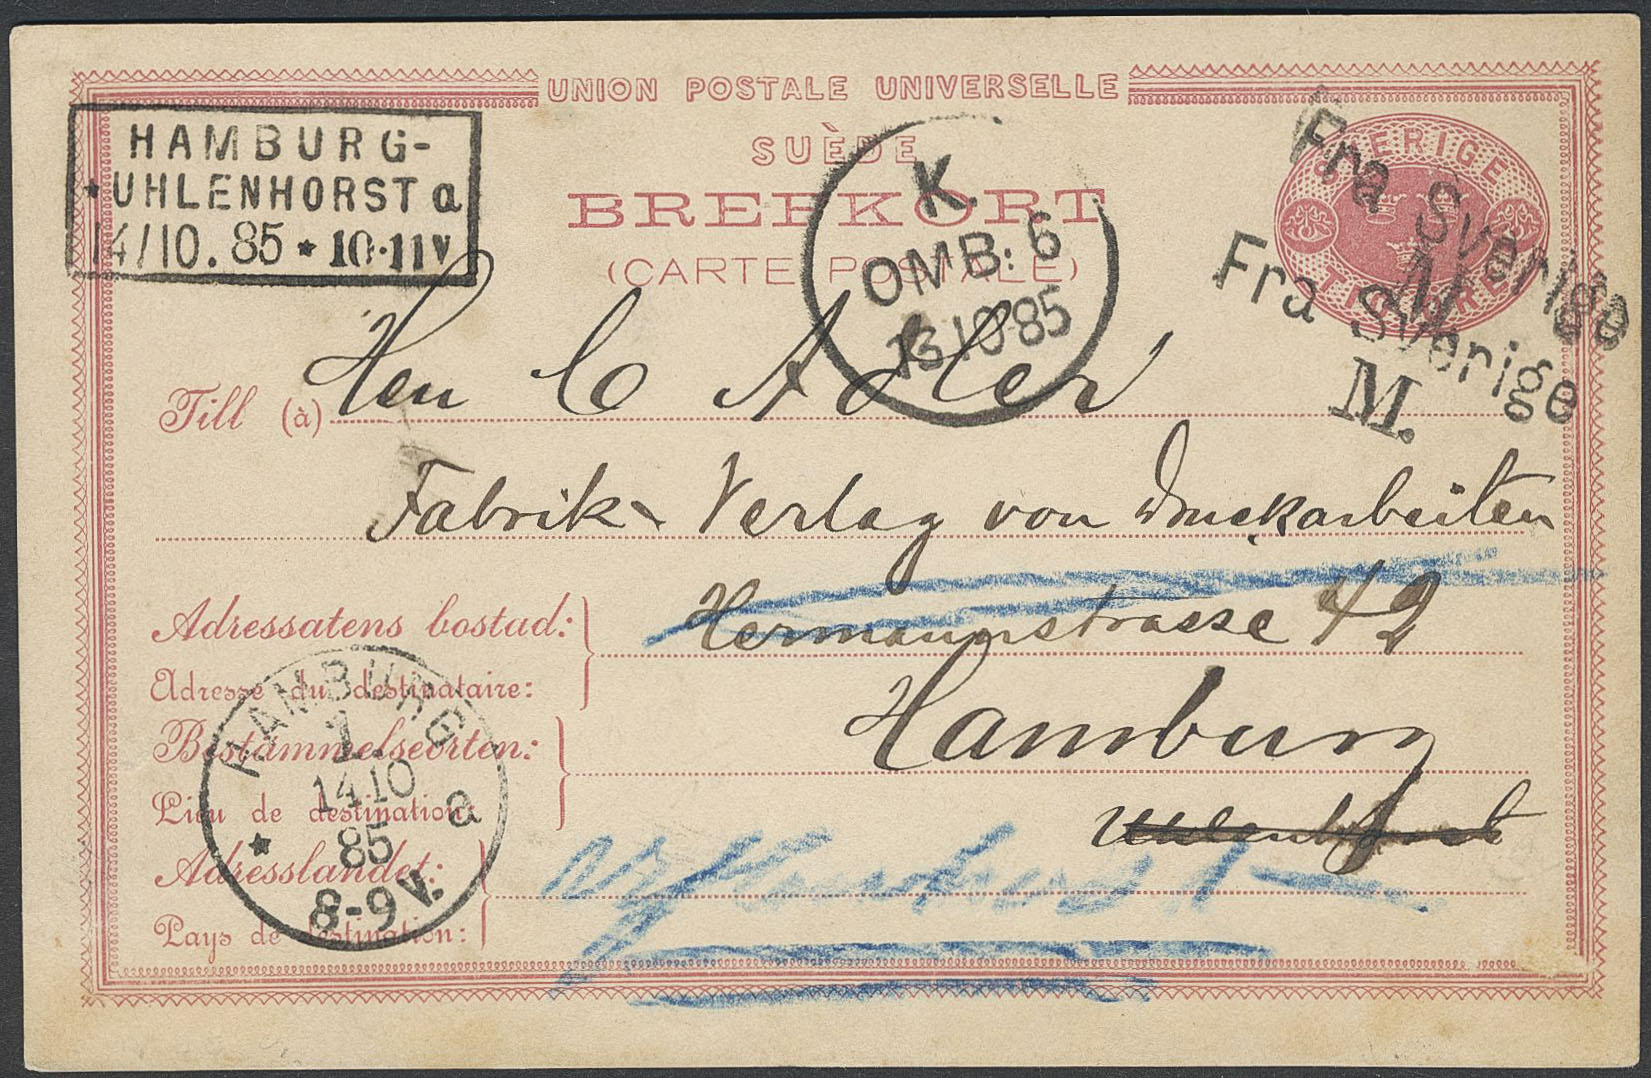 UNION POSTALE UNIVERSELLE
SUÈDE
BREFKORT
(CARTE POSTALE)
SVERIGE
TIO ÖRE
Fra Sverige
M.
Fra Sverige
M.
HAMBURG-
* UHLENHORST a
14/10.85 * 10-11V
K.
OMB: 6
13 10 85
Till (à) Herr C Adler
Fabrik & Verlag von Druckarbeiten
Adressatens bostad: Hermannstrasse 42
Adresse du destinataire:
Bestämmelseorten: Hamburg
Lieu de destination:
Uhlenhorst
Adresslandet:
Pays de destination:
HAMBURG
1.
14 10
85 a
*
8-9 V.